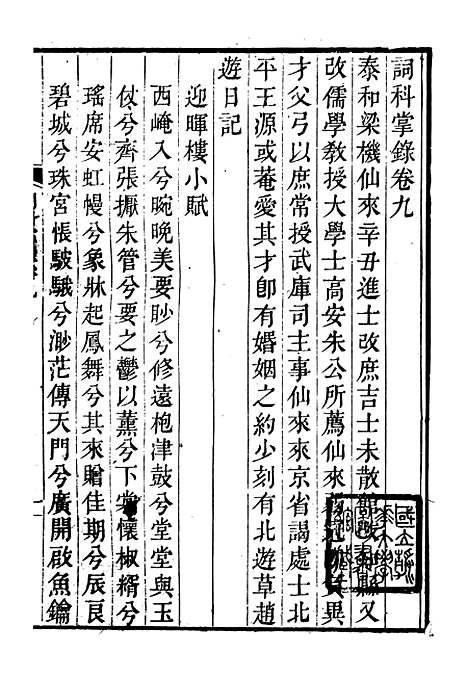 詞科掌錄卷九
泰和梁機仙來辛丑進士改庶吉士未散館改知縣又
改儒學教授大學士高安朱公所薦仙來異
才父弓以庶常授武庫司主事仙來來京省謁處士北
平王源或菴愛其才卽有婚姻之約少刻有北遊草趙
遊日記
迎暉樓小賦
西崦入兮晼晚美要眇兮修遠枹津鼓兮堂堂與玉
伩兮齊張擫朱管兮要之鬱以薰兮下裳懷椒糈兮
瑤席安虹幔兮象牀起鳳舞兮其來贈佳期兮辰良
碧城兮珠宮悵駊騀兮渺茫傳天門兮廣開啟魚鑰